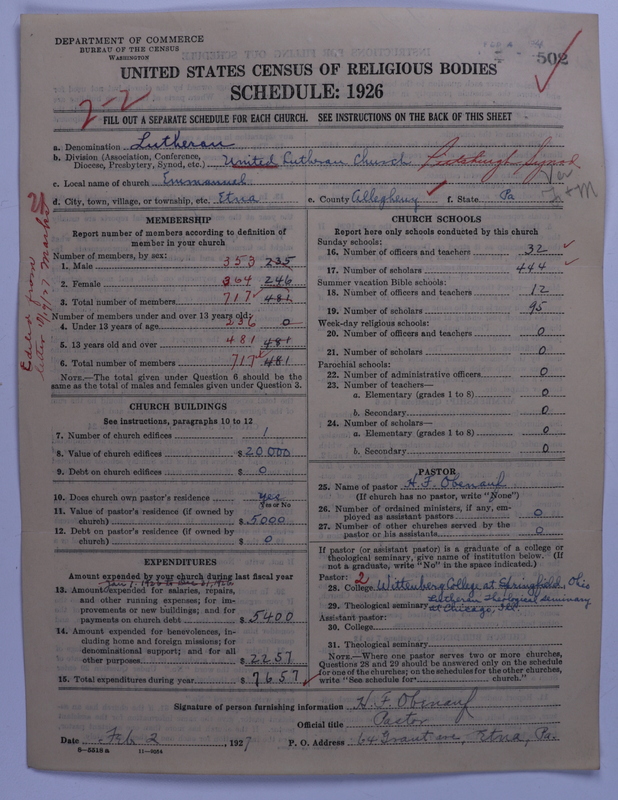 DEPARTMENT OF COMMERCE
BUREAU OF THE CENSUS
WASHINGTON
502
UNITED STATES CENSUS OF RELIGIOUS BODIES
SCHEDULE: 1926
2-2
FILL OUT A SEPARATE SCHEDULE FOR EACH CHURCH. SEE INSTRUCTIONS ON THE BACK OF THIS SHEET
a. Denomination Lutheran
b. Division (Association, Conference, Diocese, Presbytery, Synod, etc.) United Lutheran Church Pittsburgh Synod
c. Local name of church Emmanuel
d. City, town, village, or township, etc. Etna e. County Allegheny f. State Pa
MEMBERSHIP
Report number of members according to definition of
member in your church
Number of members, by sex:
1. Male 353 235
2. Female 364 246
3. Total number of members 717 481
Number of members under and over 13 years old:
4. Under 13 years of age 236 0
5. 13 years old and over 481 481
6. Total number of members 717 481
NOTE.—The total given under Question 6 should be the
same as the total of males and females given under Question 3.
CHURCH BUILDINGS
See instructions, paragraphs 10 to 12
7. Number of church edifices 1
8. Value of church edifices $ 20000
9. Debt on church edifices $ 0
10. Does church own pastor's residence yes
Yes or No
11. Value of pastor's residence (if owned by
church) $ 5000
12. Debt on pastor's residence (if owned by
church) $ 0
EXPENDITURES
Amount expended by your church during last fiscal year
13. Amount expended for salaries, repairs,
and other running expenses; for im-
provements or new buildings; and for
payments on church debt $ 5400
14. Amount expended for benevolences, in-
cluding home and foreign missions; for
denominational support; and for all
other purposes $ 2257
15. Total expenditures during year $ 7657
CHURCH SCHOOLS
Report here only schools conducted by this church
Sunday schools:
16. Number of officers and teachers 32
17. Number of scholars 444
Summer vacation Bible schools:
18. Number of officers and teachers 12
19. Number of scholars 95
Week-day religious schools:
20. Number of officers and teachers 0
21. Number of scholars 0
Parochial schools:
22. Number of administrative officers 0
23. Number of teachers—
a. Elementary (grades 1 to 8) 0
b. Secondary 0
24. Number of scholars—
a. Elementary (grades 1 to 8) 0
b. Secondary 0
PASTOR
25. Name of pastor H. F. Obenauf
(If church has no pastor, write "None")
26. Number of ordained ministers, if any, em-
ployed as assistant pastors 0
27. Number of other churches served by the
pastor or his assistants 0
If pastor (or assistant pastor) is a graduate of a college or
theological seminary, give name of institution below. (If
not a graduate, write "No" in the space indicated.)
Pastor: 2
28. College Wittenberg College at Springfield, Ohio
29. Theological seminary Lutheran Theological Seminary
at Chicago, Ill.
Assistant pastor:
30. College
31. Theological seminary
NOTE.—Where one pastor serves two or more churches,
Questions 28 and 29 should be answered only on the schedule
for one of the churches; on the schedules for the other churches,
write "See schedule for church."
Signature of person furnishing information H. F. Obenauf
Official title Pastor
Date Feb 2, 1927 P. O. Address 64 Grant ave, Etna, Pa.
8-5518 a 11-9064